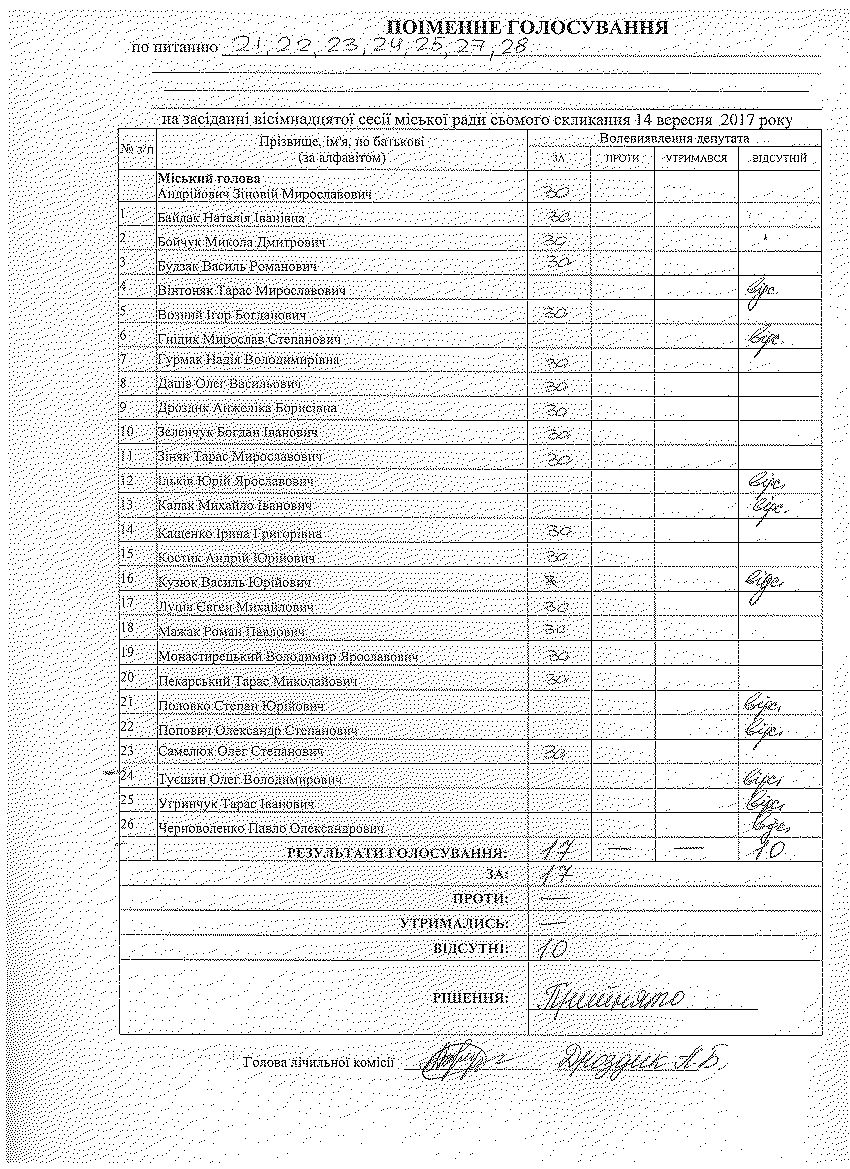 ПОІМЕННЕ ГОЛОСУВАННЯ
по питанню 21, 22, 23, 24, 25, 27, 28
на засіданні вісімнадцятої сесії міської ради сьомого скликання 14 вересня 2017 року
№ з/п Прізвище, ім'я, по батькові (за алфавітом) Волевиявлення депутата
ЗА ПРОТИ УТРИМАВСЯ ВІДСУТНІЙ
Міський голова
Андрійович Зіновій Мирославович зо
1 Байдак Наталія Іванівна зо
2 Бойчук Микола Дмитрович зо
3 Будзак Василь Романович зо
4 Вінтоняк Тарас Мирославович відс.
5 Возний Ігор Богданович зо
6 Гнідик Мирослав Степанович відс.
7 Гурмак Надія Володимирівна зо
8 Даців Олег Васильович зо
9 Дроздик Анжеліка Борисівна зо
10 Зеленчук Богдан Іванович зо
11 Зіняк Тарас Мирославович зо
12 Ільків Юрій Ярославович відс.
13 Капак Михайло Іванович відс.
14 Кащенко Ірина Григорівна зо
15 Костик Андрій Юрійович зо
16 Кузюк Василь Юрійович відс.
17 Луців Євген Михайлович зо
18 Мажак Роман Павлович зо
19 Монастирецький Володимир Ярославович зо
20 Пекарський Тарас Миколайович зо
21 Половко Степан Юрійович відс.
22 Попович Олександр Степанович відс.
23 Самелюк Олег Степанович зо
24 Туєшин Олег Володимирович відс.
25 Угринчук Тарас Іванович відс.
26 Черноволенко Павло Олександрович відс.
РЕЗУЛЬТАТИ ГОЛОСУВАННЯ: 17 — — 10
ЗА: 17
ПРОТИ: —
УТРИМАЛИСЬ: —
ВІДСУТНІ: 10
РІШЕННЯ: Прийнято
Голова лічильної комісії Дроздик А.Б.